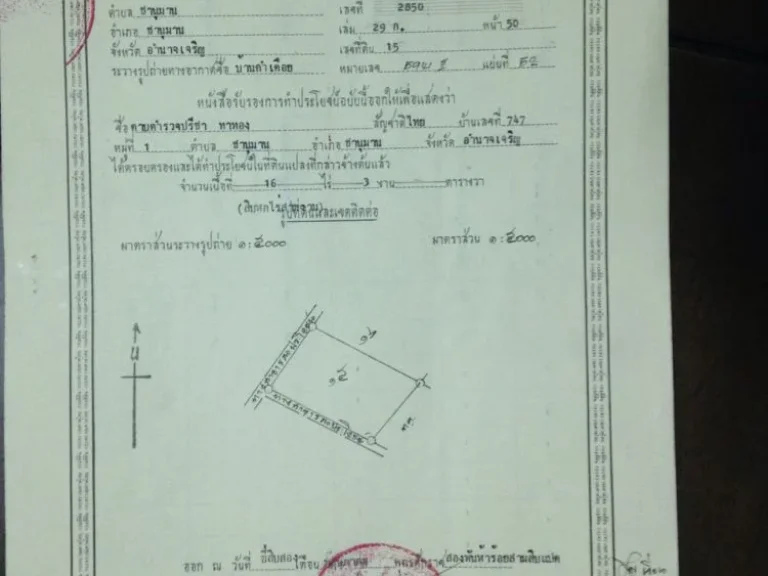 ตำบล ชานุมาน เลขที่ 2850
อำเภอ ชานุมาน เล่ม 29 ก. หน้า 50
จังหวัด อำนาจเจริญ เลขที่ดิน 15
ระวางรูปถ่ายทางอากาศชื่อ บ้านคำเดือย หมายเลข แผ่นที่ ๕๘
หนังสือรับรองการทำประโยชน์ฉบับนี้ออกให้เพื่อแสดงว่า
ชื่อ ดาบตำรวจปรีชา ทาทอง สัญชาติ ไทย บ้านเลขที่ 747
หมู่ที่ 1 ตำบล ชานุมาน อำเภอ ชานุมาน จังหวัด อำนาจเจริญ
ได้ครอบครองและได้ทำประโยชน์ในที่ดินแปลงที่กล่าวข้างต้นแล้ว
จำนวนเนื้อที่ 16 ไร่ 3 งาน ตารางวา
(สิบหกไร่สามงาน)
รูปที่ดินและเขตติดต่อ
มาตราส่วนระวางรูปถ่าย ๑ : ๕๐๐๐ มาตราส่วน ๑ : ๕๐๐๐
น
๑๕
ออก ณ วันที่ ยี่สิบสอง เดือน พุทธศักราช สองพันห้าร้อยสามสิบแปด